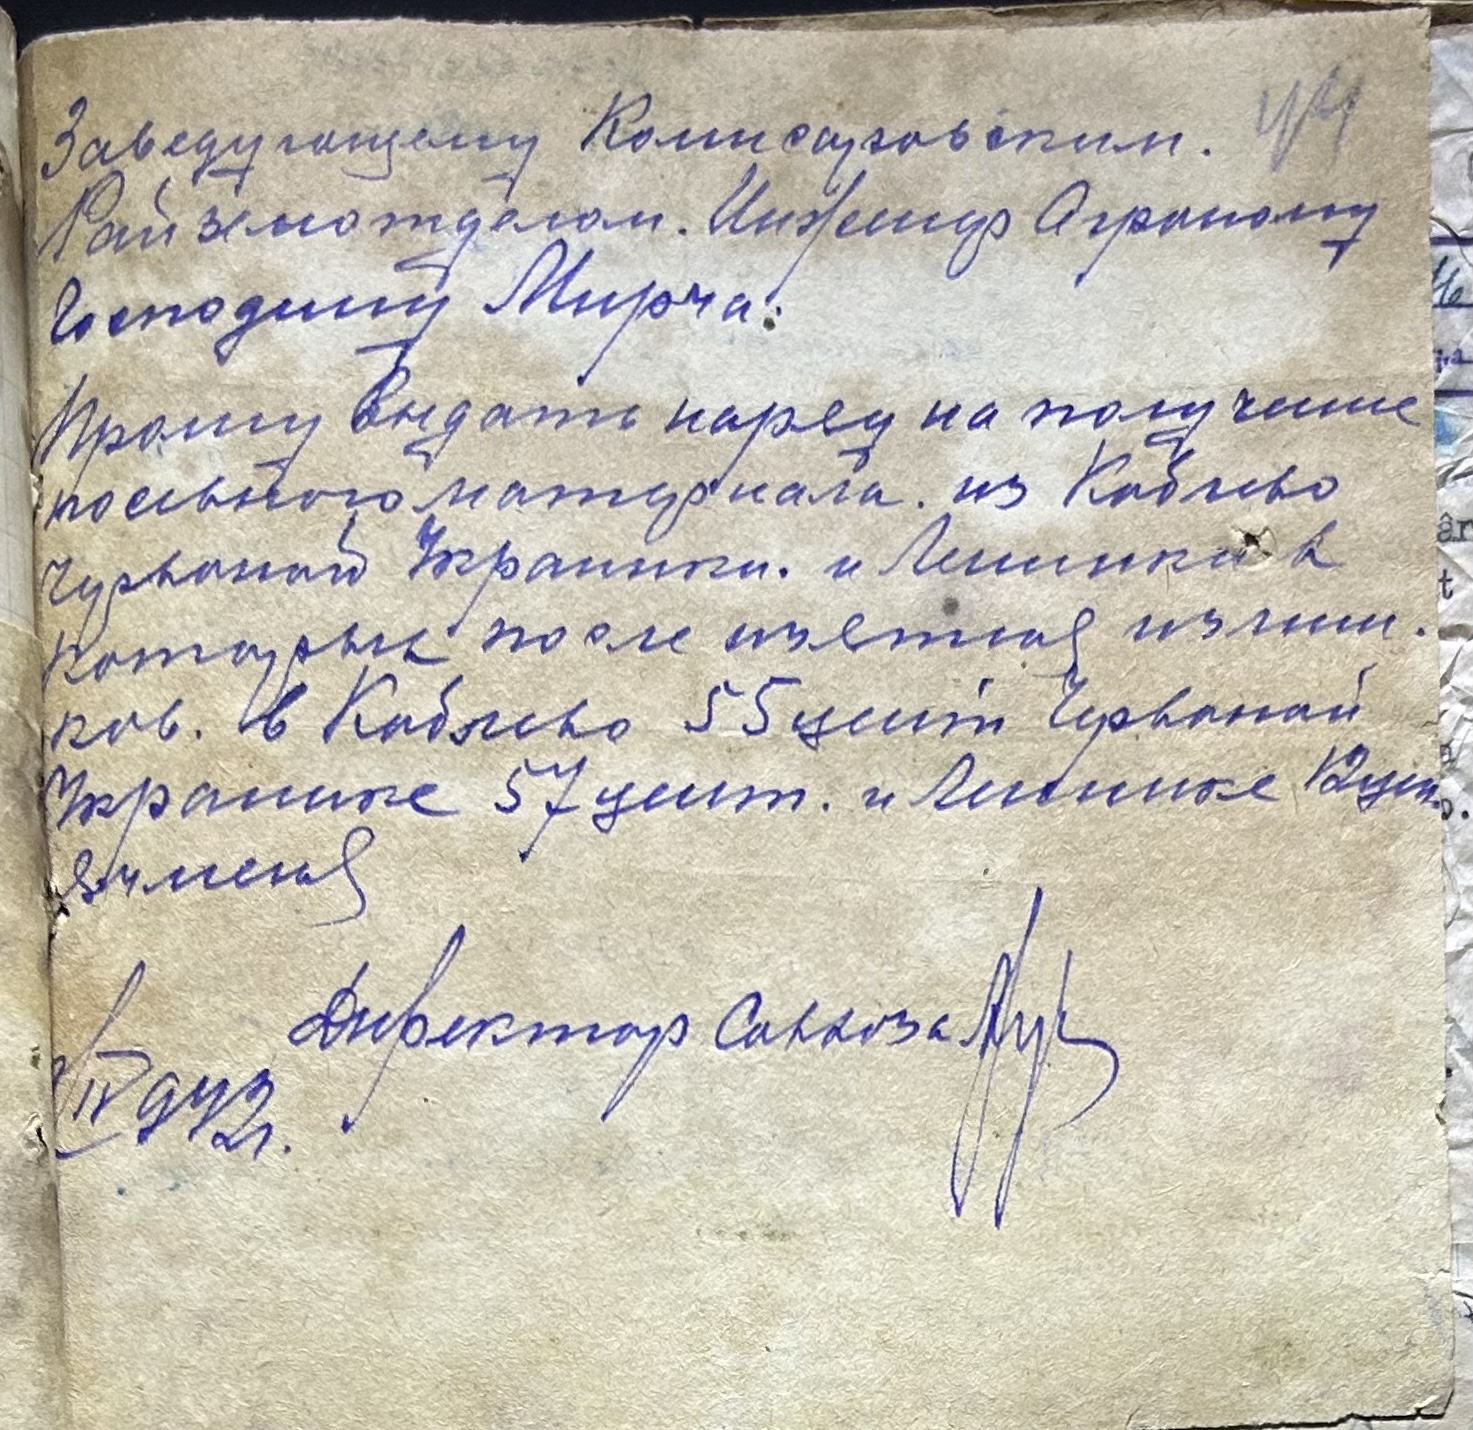 44
Заведующему Комисаровским.
Райземотделом. Инженер Агроному
Господину Мирча.
Прошу выдать наряд на получение
посевного материала. из Коблево
Червоной Украинки. и Ленинки в
которых после изятия излиш.
ков. в Коблево 55 цент Червоной
Украинке 57 цент. и Ленинке 12 цен.
ячменя
Директор Совхоза
IV 942г.